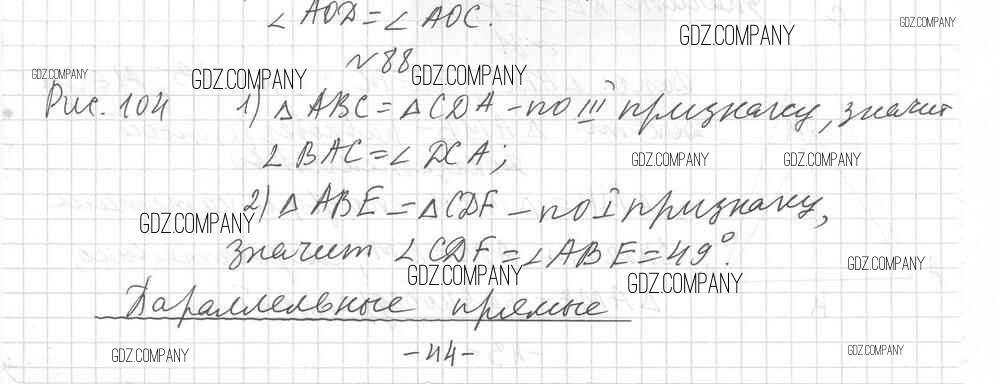 ∠ AOD = ∠ AOC.
№ 88
Рис. 104 1) △ ABC = △ CDA – по III признаку, значит
∠ BAC = ∠ DCA;
2) △ ABE = △ CDF – по I признаку,
значит ∠ CDF = ∠ ABE = 49°.
Параллельные прямые
- 44 -
GDZ.COMPANY
GDZ.COMPANY
GDZ.COMPANY
GDZ.COMPANY
GDZ.COMPANY
GDZ.COMPANY
GDZ.COMPANY
GDZ.COMPANY
GDZ.COMPANY
GDZ.COMPANY
GDZ.COMPANY
GDZ.COMPANY
GDZ.COMPANY